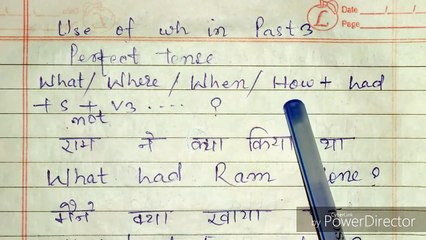 Date 1 1
Page
Use of wh in Past
Perfect tense
What/ Where / When/ How + had
+ S + V3 .... ?
not
राम ने क्या किया था
What had Ram done?
मैंने क्या खाया
Made with
PowerDirector